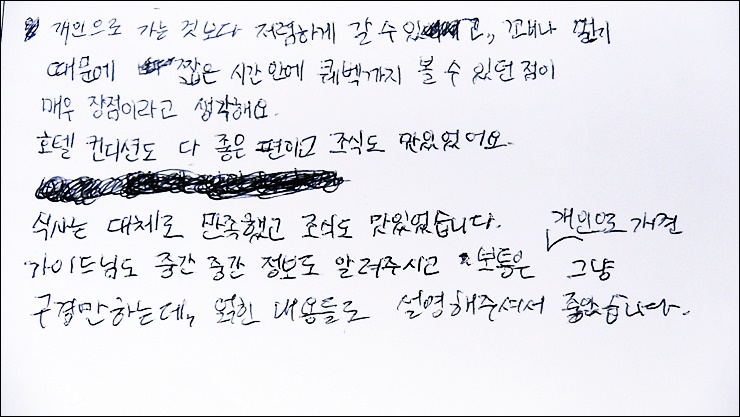 개인으로 가는 것보다 저렴하게 갈 수 있고, 꼬내나 멀기
때문에 짧은 시간 안에 퀘벡까지 볼 수 있던 점이
매우 장점이라고 생각해요.
호텔 컨디션도 다 좋은 편이고 조식도 맛있었어요.
식사는 대체로 만족했고 조식도 맛있었습니다.
가이드님도 중간 중간 정보도 알려주시고 보통은 개인으로 가면 그냥
구경만하는데, 얽힌 내용들도 설명해주셔서 좋았습니다.